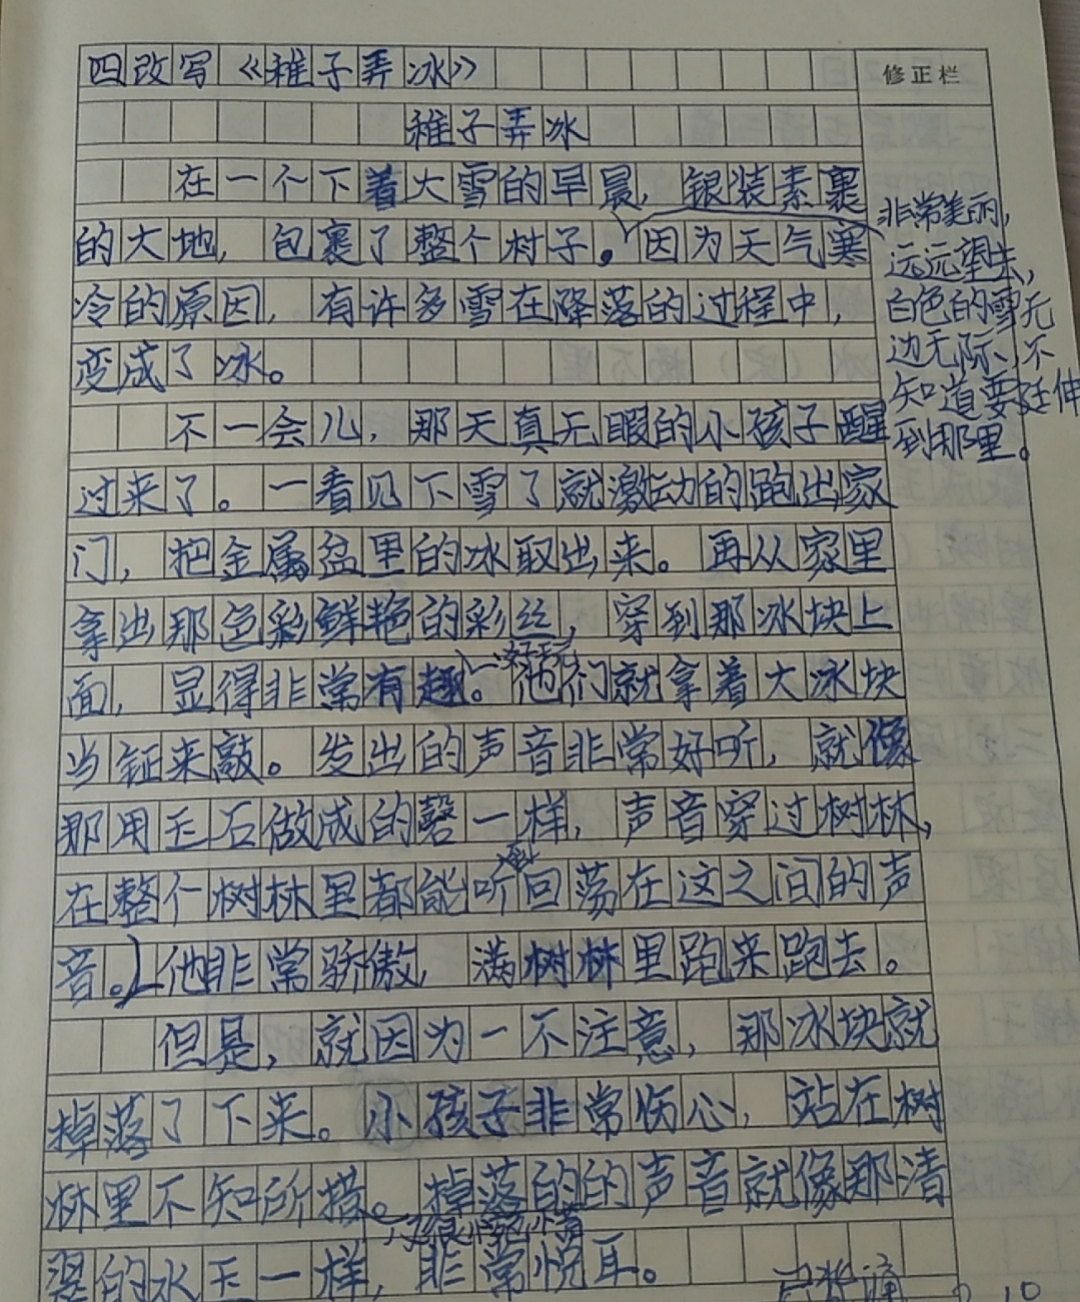 四改写《稚子弄冰》
修正栏
稚子弄冰
在一个下着大雪的早晨，银装素裹
的大地，包裹了整个村子。因为天气寒
冷的原因，有许多雪在降落的过程中，
变成了冰。
非常美丽，
远远望去，
白色的雪无
边无际、不
知道要延伸
到那里。
不一会儿，那天真无暇的小孩子醒
过来了。一看见下雪了就激动的跑出家
门，把金属盆里的冰取出来。再从家里
拿出那色彩鲜艳的彩丝，穿到那冰块上
面，显得非常有趣。他们就拿着大冰块
当钲来敲。发出的声音非常好听，就像
那用玉石做成的磬一样，声音穿过树林，
在整个树林里都能听回荡在这之间的声
音。他非常骄傲，满树林里跑来跑去。
但是，就因为一不注意，那冰块就
掉落了下来。小孩子非常伤心，站在树
林里不知所措。掉落的的声音就像那清
翠的水玉一样，非常悦耳。